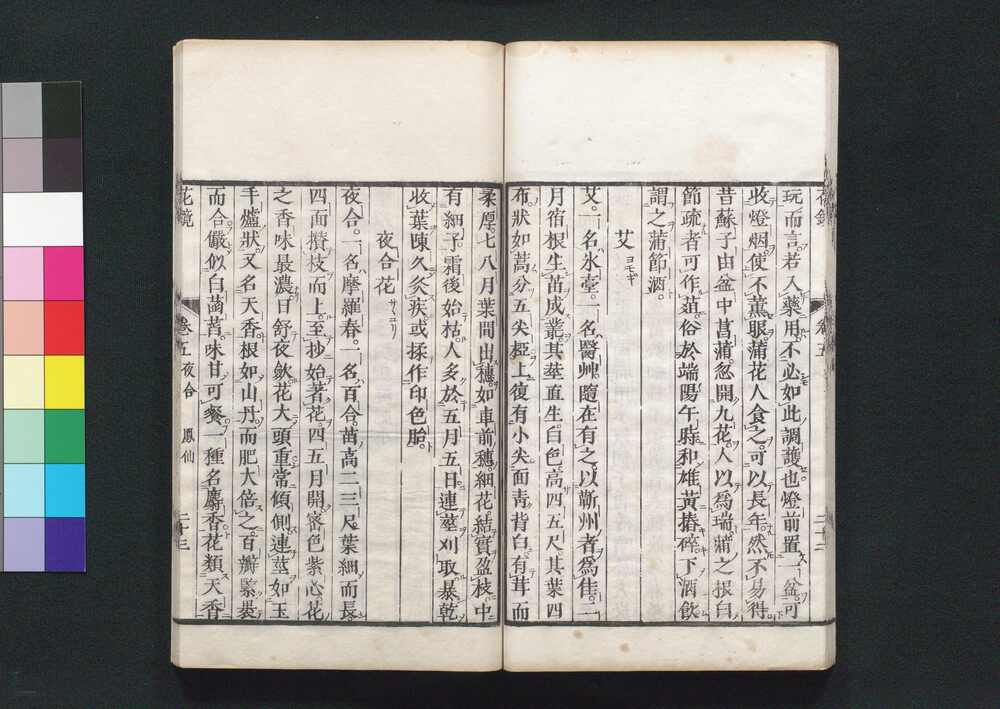 玩而言若入藥用不必如此調護也燈前置一盆可
收燈烟使不薰眼蒲花人食之可以長年然不易得
昔蘇子由盆中菖蒲忽開九花人以爲瑞蒲之根白
節疏者可作葅俗於端陽午縣和雄黃搗碎下酒飲
謂之蒲節酒
艾 ヨモギ
艾一名氷臺一名醫艸隨在有之以蘄州者爲佳二
月宿根生苗成叢其莖直生白色高四五尺其葉四
布狀如蒿分五尖椏上復有小尖面青背白有茸而
柔厚七八月葉間出穗如車前穗細花結實盈枝中
有細子霜後始枯人多於五月五日連莖刈取暴乾
收葉陳久灸疾或揉作印色胎
夜合花 サユリ
夜合一名摩羅春一名百合苗高二三尺葉細而長
四面攢枝而上至抄始著花四五月開蜜色紫心花
之香味最濃日舒夜歛花大頭重常傾側連莖如玉
手爐狀又名天香根如山丹而肥大倍之百瓣緊裹
而合儼似白菡萏味甘可餐一種名麝香花類天香
花鏡
卷五 夜合 鳳仙
二十三